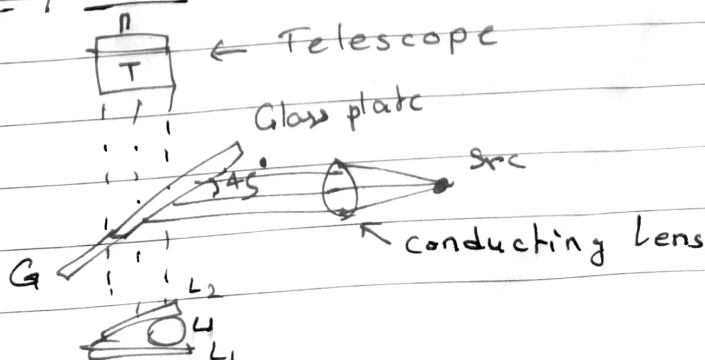 T
← Telescope
Glass plate
45°
Src
conducting Lens
G
L2
L1